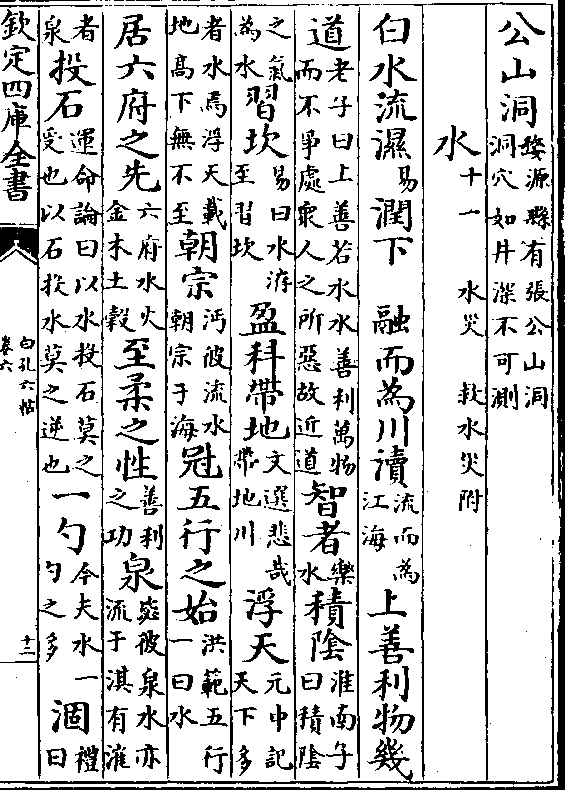 公山洞婺源縣有張公山洞洞穴如井深不可測
水十一 水災 救水災附
白水流濕易潤下 融而為川瀆流而為江海上善利物幾
道老子曰上善若水水善利萬物而不爭處衆人之所惡故近道智者樂水積陰淮南子曰積陰
之氣為水習坎易曰水洊至習坎盈科帶地文選悲哉帶地川浮天元中記天下多
者水焉浮天載地高下無不至朝宗沔彼流水朝宗于海冠五行之始洪範五行一曰水
居六府之先六府水火金木土穀至柔之性善利之功泉毖彼泉水亦流于淇有淮
者泉投石運命論曰以水投石莫之受也以石投水莫之逆也一勺今夫水一勺之多涸禮曰
欽定四庫全書
白孔六帖
卷六
十二